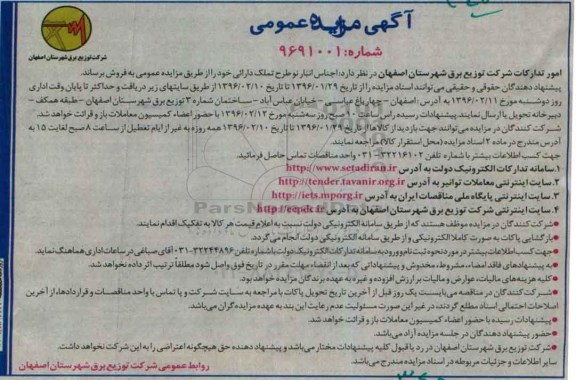 آگهی مزایده عمومی
شماره: ۹۶۹۱۰۰۱
شرکت توزیع برق شهرستان اصفهان
امور تدارکات شرکت توزیع برق شهرستان اصفهان در نظر دارد: اجناس انبار نو طرح تملک دارائی خود را از طریق مزایده عمومی به فروش برساند.
پیشنهاد دهندگان حقوقی و حقیقی می‌توانند اسناد مزایده را از تاریخ ۱۳۹۶/۰۱/۲۹ تا تاریخ ۱۳۹۶/۰۲/۱۰ از طریق سایتهای زیر دریافت و حداکثر تا پایان وقت اداری
روز دوشنبه مورخ ۱۳۹۶/۰۲/۱۱ به آدرس: اصفهان - چهارباغ عباسی - خیابان عباس آباد - ساختمان شماره ۳ توزیع برق شهرستان اصفهان - طبقه همکف -
دبیرخانه تحویل یا ارسال نمایند. پیشنهادات رسیده راس ساعت ۱۰ صبح روز سه‌شنبه مورخ ۱۳۹۶/۰۲/۱۲ با حضور اعضاء کمیسیون معاملات باز و قرائت خواهد شد.
شرکت کنندگان در مزایده می توانند جهت بازدید از کالاها از تاریخ ۱۳۹۶/۰۱/۲۹ تا تاریخ ۱۳۹۶/۰۲/۱۰ همه روزه به غیر از ایام تعطیل از ساعت ۸ صبح لغایت ۱۵ به
آدرس مندرج در ماده ۲ اسناد مزایده (محل استقرار کالا) مراجعه نمایند.
جهت کسب اطلاعات بیشتر با شماره تلفن ۳۲۲۱۶۱۰۲-۰۳۱ واحد مناقصات تماس حاصل فرمائید.
۱. سامانه تدارکات الکترونیک دولت به آدرس http://www.setadiran.ir
۲. سایت اینترنتی معاملات توانیر به آدرس http://tender.tavanir.org.ir
۳. سایت اینترنتی پایگاه ملی مناقصات ایران به آدرس http://iets.mporg.ir
۴. سایت اینترنتی شرکت توزیع برق شهرستان اصفهان به آدرس http://eepdc.ir
شرکت کنندگان در مزایده موظف هستند که از طریق سامانه الکترونیکی دولت نسبت به اعلام قیمت هر کالا به تفکیک اقدام نمایند.
بازگشایی پاکات به صورت کاملا الکترونیکی و از طریق سامانه الکترونیکی دولت انجام می گردد.
جهت کسب اطلاعات بیشتر در مورد نحوه ثبت نام و ورود به سامانه تدارکات الکترونیک دولت با شماره تلفن ۳۲۲۴۴۸۹۶-۰۳۱ آقای صباغی در ساعات اداری هماهنگ نماید.
به پیشنهادهای فاقد امضاء، مشروط، مخدوش و پیشنهاداتی که بعد از انقضاء مهلت مقرر در تاریخ فوق واصل شود مطلقاً ترتیب اثر داده نخواهد شد.
کلیه هزینه های مالیات، عوارض و مالیات بر ارزش افزوده و غیره به عهده برندگان مزایده خواهد بود.
شرکت کنندگان در مناقصه می‌بایست یک روز قبل از آخرین تاریخ تحویل پاکات با مراجعه به سایت شرکت و یا تماس با واحد مناقصات و قراردادها، از آخرین
اصلاحات احتمالی اسناد مطلع گردند، در غیر این صورت مسئولیت عدم رعایت این بند به عهده مزایده گران می باشد.
پیشنهادات رسیده با حضور اعضاء کمیسیون معاملات باز و قرائت خواهد شد.
حضور پیشنهاد دهندگان در جلسه مزایده آزاد می باشد.
شرکت توزیع برق شهرستان اصفهان در رد یا قبول کلیه پیشنهادات مختار می باشد و پیشنهاد دهنده حق هیچگونه اعتراضی را به این شرکت نخواهد داشت.
سایر اطلاعات و جزئیات مربوطه در اسناد مزایده مندرج می باشد.
روابط عمومی شرکت توزیع برق شهرستان اصفهان